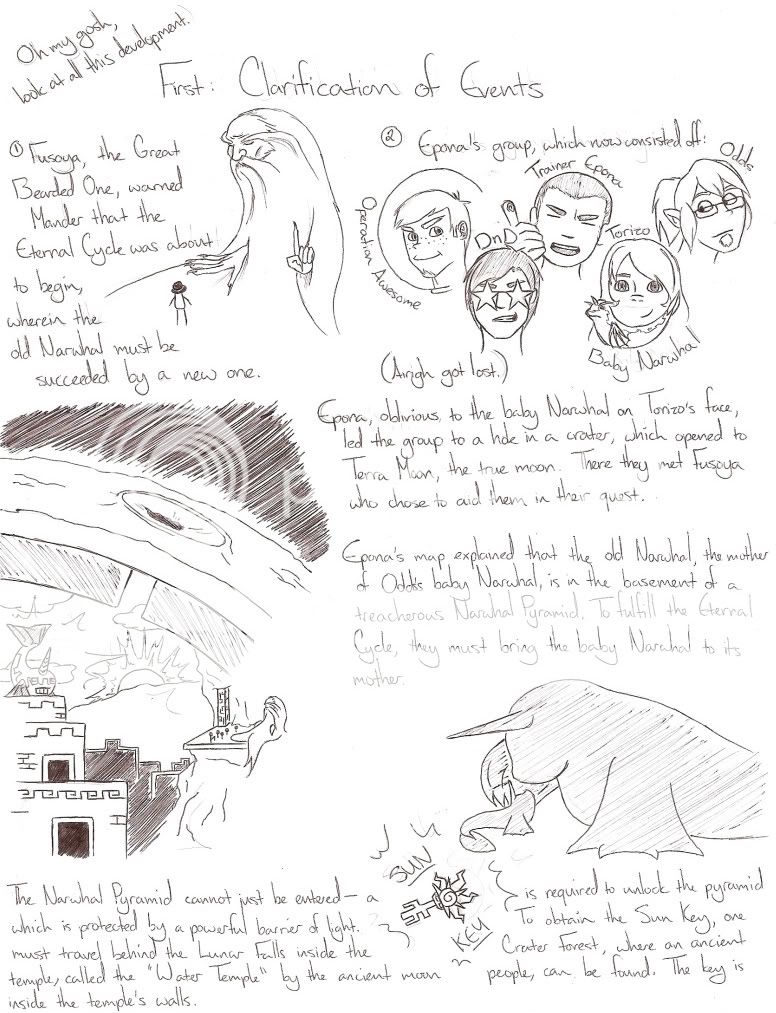 Oh my gosh,
look at all this development.
First: Clarification of Events
① Fusoya, the Great
Bearded One, warned
Mander that the
Eternal Cycle was about
to begin,
wherein the
old Narwhal must be
succeeded by a new one.
② Epona's group, which now consisted of:
Operation Awesome
DnD
Trainer Epona
Torizo
Odds
Baby Narwhal
(Airigh got lost.)
Epona, oblivious to the baby Narwhal on Torizo's face,
led the group to a hole in a crater, which opened to
Terra Moon, the true moon. There they met Fusoya
who chose to aid them in their quest.
Epona's map explained that the old Narwhal, the mother
of Odds's baby Narwhal, is in the basement of a
treacherous Narwhal Pyramid. To fulfill the Eternal
Cycle, they must bring the baby Narwhal to its
mother.
The Narwhal Pyramid cannot just be entered— a SUN KEY is required to unlock the pyramid
which is protected by a powerful barrier of light. To obtain the Sun Key, one
must travel behind the Lunar Falls inside the Crater Forest, where an ancient
temple, called the "Water Temple" by the ancient moon people, can be found. The key is
inside the temple's walls.